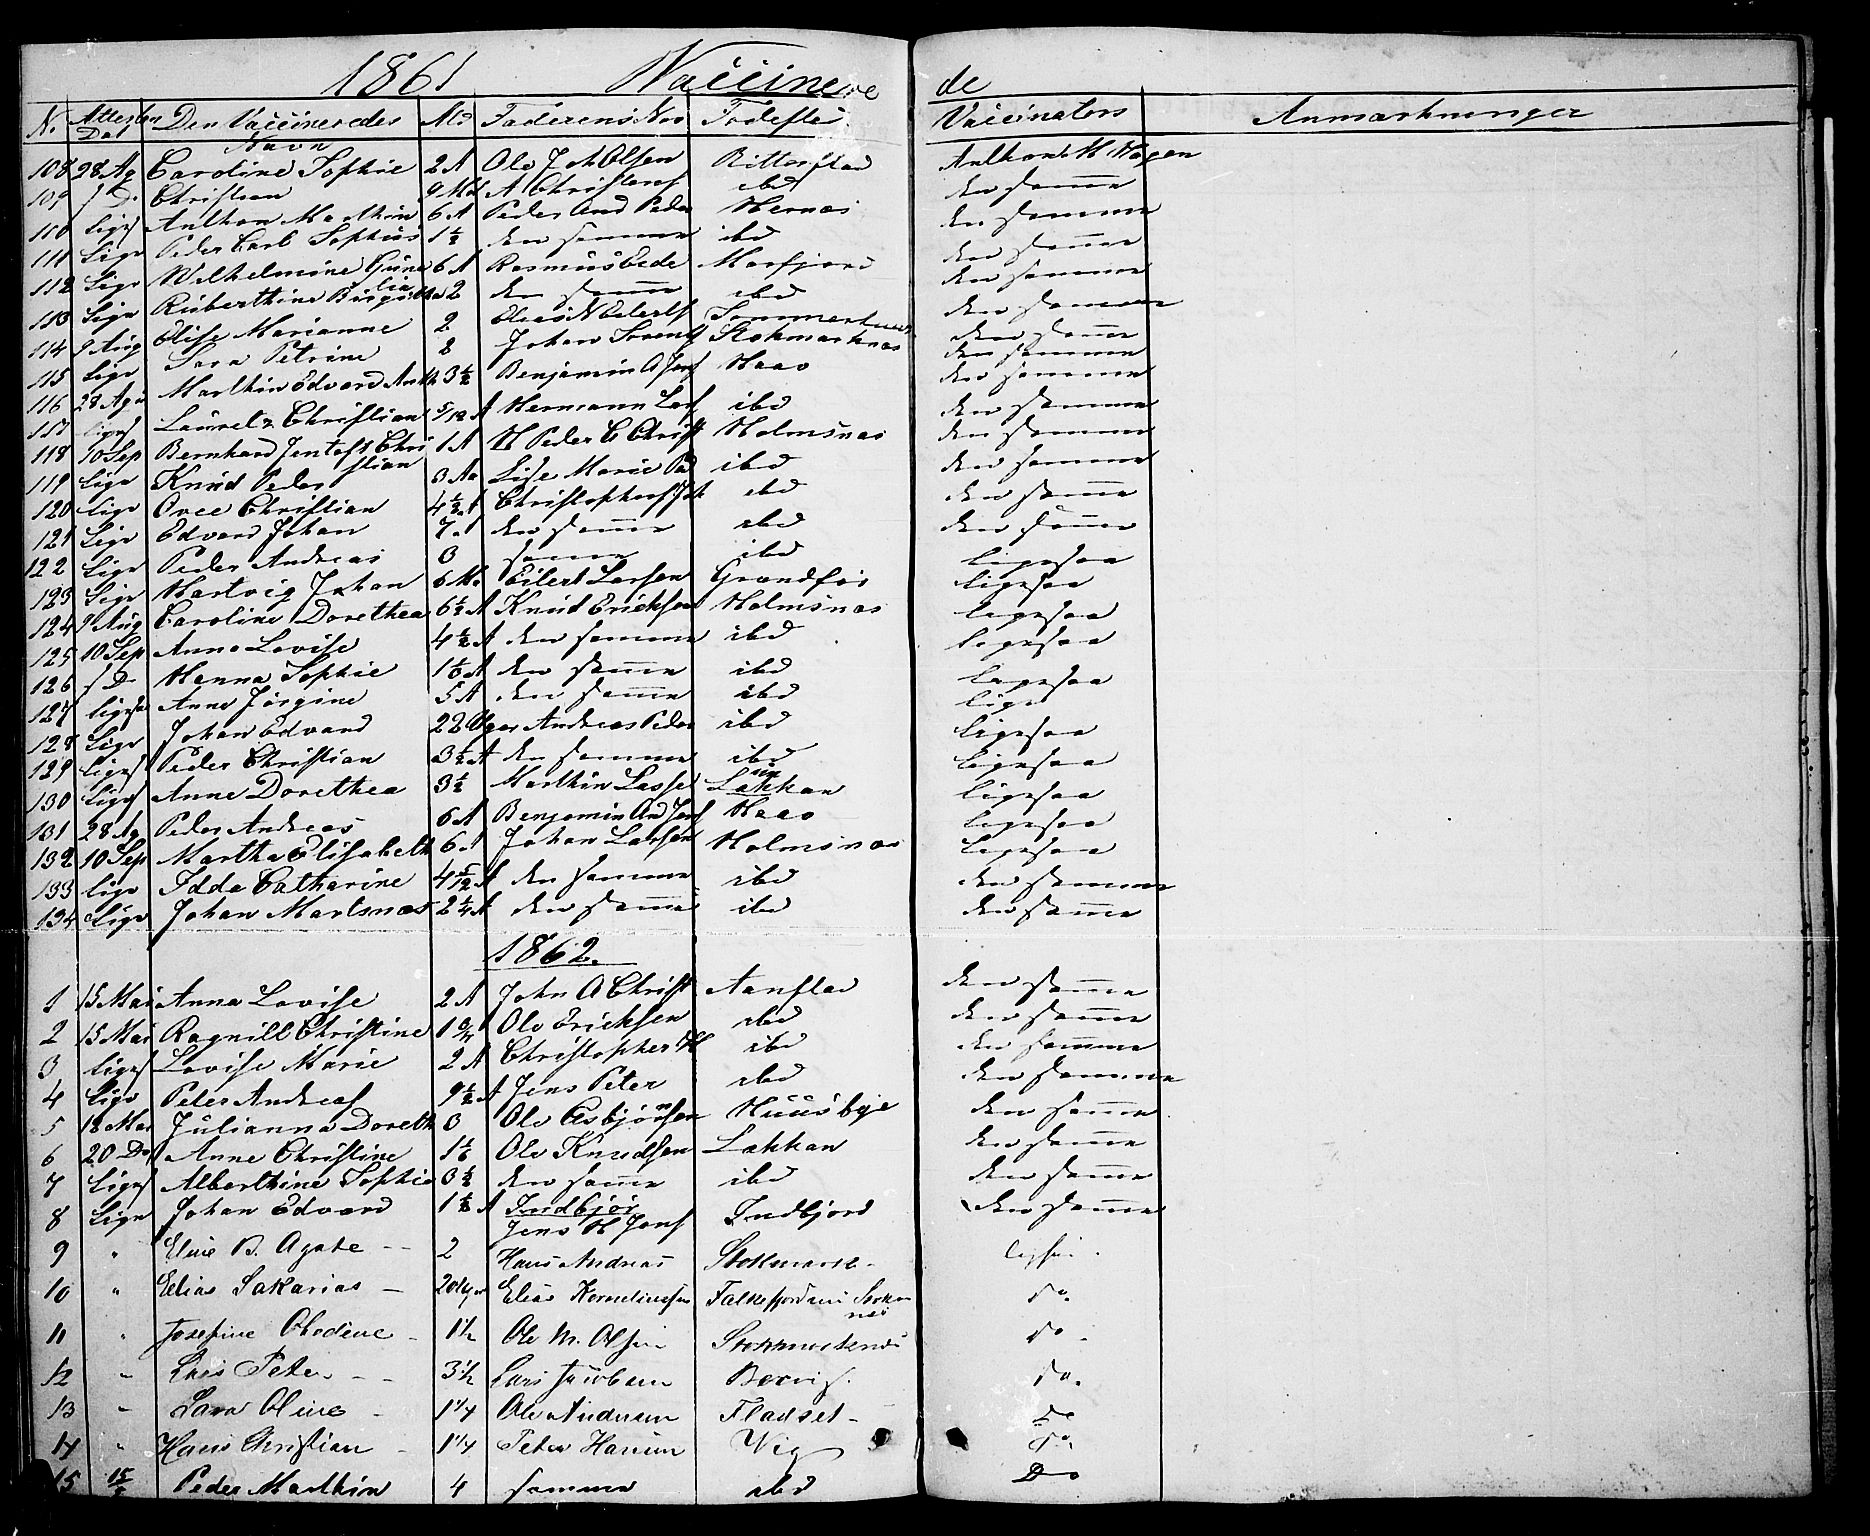 1861 Vaccinere de
No Attesten Dat Den Vaccineredes Navn Ald Faderens Nav Fødested Vaccinators Anmærkninger
108 28 Ag Caroline Sophie 2 A Ole Joh Olsen Ritterstad Anthon M Hagen
109 s D. Christian 9 Md A Christens ibd den samme
110 ligs Anthon Marthin 6 A Peder And Peder Hernæs den samme
111 Lige Peder Carl Sophus 1½ den samme ibd den samme
112 Lige Wilhelmine 6 A Rasmus Morfjord den samme
113 Lige Ruberthine 2 den samme ibd den samme
114 9 Aug Elise Marianne 2 Elias den samme
115 Lige Sara Petrine 2 Johan Stokmarknæs den samme
116 28 Agu Marthin Edvard Anth 3½ Benjamin A Jens Haao den samme
117 ligs Lauretz Christian 5/12 A Hermann Lars ibd den samme
118 10 Sep Bernhard Jentoft Christian 1 A H Peder C Christ Holmsnæs den samme
119 Lige Knud Peder 3 Aa Lise Marie Pd ibd den samme
120 Lige Ovee Christian 4½ A ibd den samme
121 Lige Edvard Johan 7 A den samme ibd den samme
122 Lige Peder Andreas 3 samme ibd ligesaa
123 Lige Hartvig Johan 6 M. Eilert Larsen Grandfor ligesaa
124 9 Aug Caroline Dorethea 6½ A Knud Ericksen Holmsnæs ligesaa
125 10 Sep Anna Lovise 4½ A den samme ibd ligesaa
126 s D Hanna Sophie den samme ibd ligesaa
127 ligesa Anne Jørgine 5 A den samme ibd lige
128 Lige Johan Edvard 22 Uger Andreas Peder ibd ligesaa
129 ligs Peder Christian 3½ A den samme ibd ligesaa
130 ligs Anne Dorethea 3½ Marthin Lasse Lakkan ligesaa
131 28 Ag Peder Andreas 6 A Benjamin And Jens Haao ligesaa
132 10 Sep Martha Elisabeth 6 A Johan Larsen Holmsnæs ligesaa
133 lige Idda Catharine 4 5/12 A den samme ibd den samme
134 Lige Johan Martsnæs 2¼ A den samme ibd den samme
1862.
1 15 Mai Anna Lovise 2 A John A Christ Aanstad den samme
2 15 Mai Ragnill Christine Ole Ericksen ibd den samme
3 ligs Lovise Marie 2 A Christopher H ibd den samme
4 lige Peder Andreas 9½ A Jens Peter ibd den samme
5 18 Mai Julianna Doreth 3 Ole Asbjørnsen Huusbye den samme
6 20 Ds Anne Christine Ole Knudsen Lakkan den samme
7 Ligs Alberthine Sophie 3½ den samme ibd den samme
8 Lige Johan Edvard 1½ A Indbjør Jens H Jens Indbjord den samme
9 " Eline B. Agate - - 2 Hans Andreas Stokmark-
10 " Elias Sakarias - 20 Uger Elias Korneliussen Falkefjorden Stokm næs Do.
11 " Josefine Obedine - 1½ Ole M. Olsen Stokmarknæs Do -
12 " Lars Peter - - 3½ Lars Jacobsen Do.
13 " Sara Oline - 1¼ Ole Andersen Fladset - Do
14 " Hans Christian - 1¼ Peter Hansen Vig Do.
15 15/ Peder Marthin 4 samme ibd Do